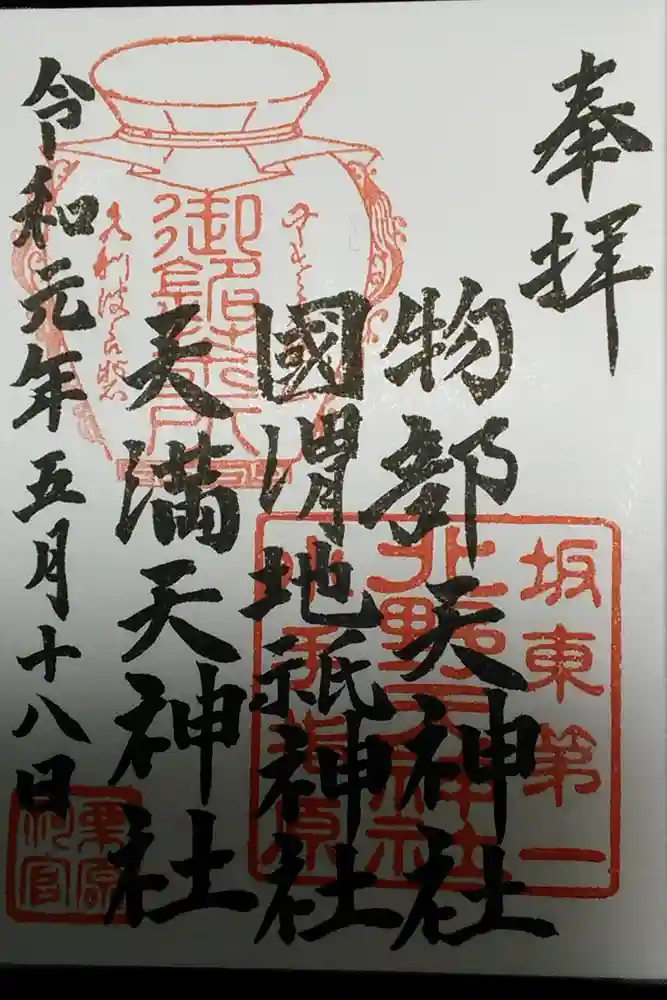 奉拝
物部天神社
國渭地祇神社
天満天神社
令和元年五月十八日
坂東第一
北野天神社
御
栗原